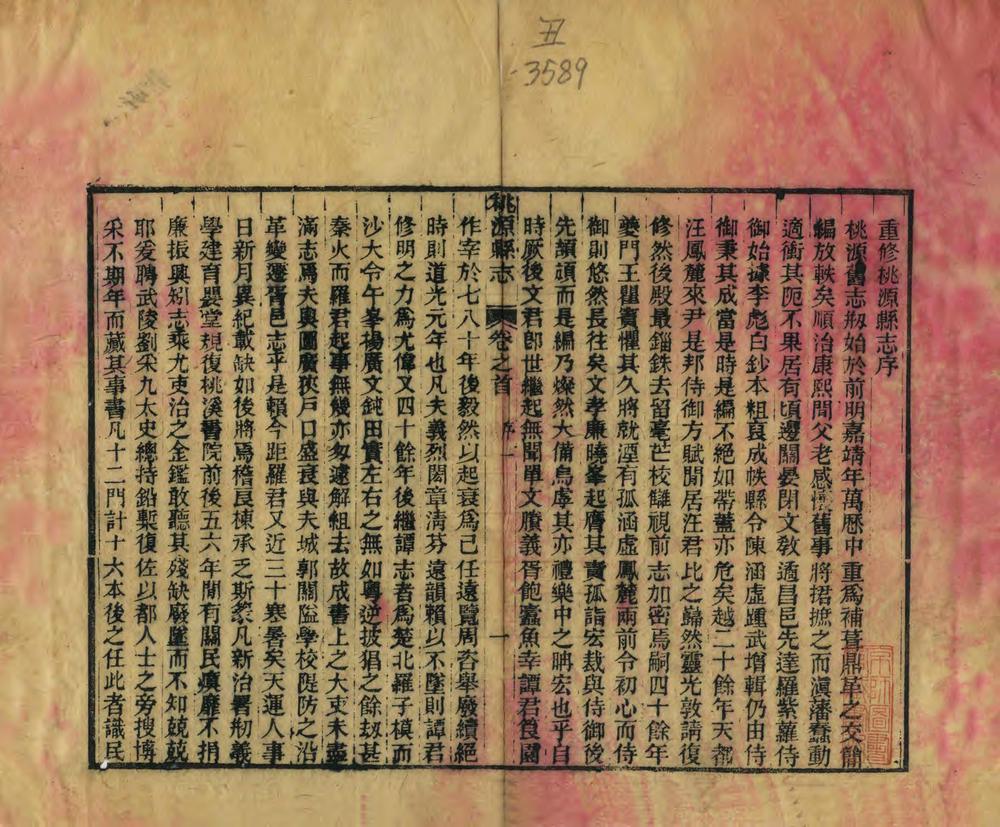 丑
3589
重修桃源縣志序
桃源舊志刱始於前明嘉靖年萬曆中重爲補葺鼎革之交簡
編放軼矣順治康熙間父老感舊事將捃摭之而滇藩蠢動
適衝其阨不果居有頃邊關晏閉文敎遹昌邑先達羅紫蘿侍
御始據李彪白鈔本粗良成帙縣令陳涵虛踵武增輯仍由侍
御秉其成當是時是編不絕如帶蓋亦危矣越二十餘年天都
汪鳳麓來尹是邦侍御方賦閒居汪君比之巋然靈光敦請復
修然後殿最錙銖去留毫芒校讎視前志加密焉嗣四十餘年
夔門王瞿賣懼其久將就湮有孤涵虛鳳麓兩前令初心而侍
御則悠然長往矣文孝廉曉峯起膺其責孤詣宏裁與侍御後
先頡頏而是編乃燦然大備烏虖其亦禮樂中之聃宏也乎自
時厥後文君卽世繼起無聞單文賸義胥飽蠹魚幸譚君良園
桃源縣志 卷之首 序 一
作宰於七八十年後毅然以起衰爲己任遠覽周咨舉廢續絕
時則道光元年也凡夫義烈閎章淸芬遠韻賴以不墜則譚君
修明之力爲尤偉又四十餘年後繼譚志者爲楚北羅子模而
沙大令午峯楊廣文鈍田實左右之無如粵逆披猖之餘刼甚
秦火而羅君起事無幾亦匆遽解組去故成書上之大吏未盡
滿志焉夫輿圖廣狹戶口盛衰與夫城郭關隘學校隄防之沿
革變遷胥邑志乎是賴今距羅君又近三十寒暑矣天運人事
日新月異紀載缺如後將焉稽良棟承乏斯縣凡新治署刱義
學建育嬰堂規復桃溪書院前後五六年間有關民瘼靡不捐
廉振興矧志乘尤吏治之金鑑敢聽其殘缺廢墜而不知兢兢
耶爰聘武陵劉采九太史總持鉛槧復佐以都人士之旁搜博
采不期年而蕆其事書凡十二門計十六本後之任此者識民